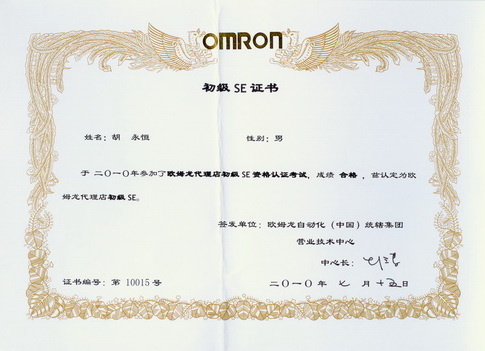 OMRON
初级 SE 证书
姓名：胡 永恒 性别：男
于 二〇一〇年参加了欧姆龙代理店初级 SE 资格认证考试，成绩 合格 ，兹认定为欧
姆龙代理店初级 SE。
签发单位：欧姆龙自动化（中国）统辖集团
营业技术中心
中心长：
证书编号：第 10015 号 二〇一〇年 七 月 十五 日